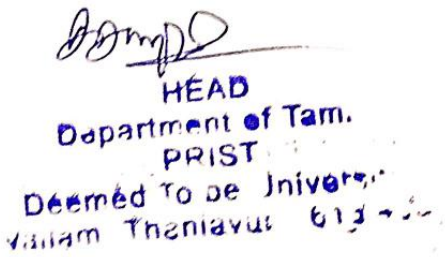 HEAD
Department of Tam.
PRIST
Deemed To be Univers
Vallam Thanjavur 613